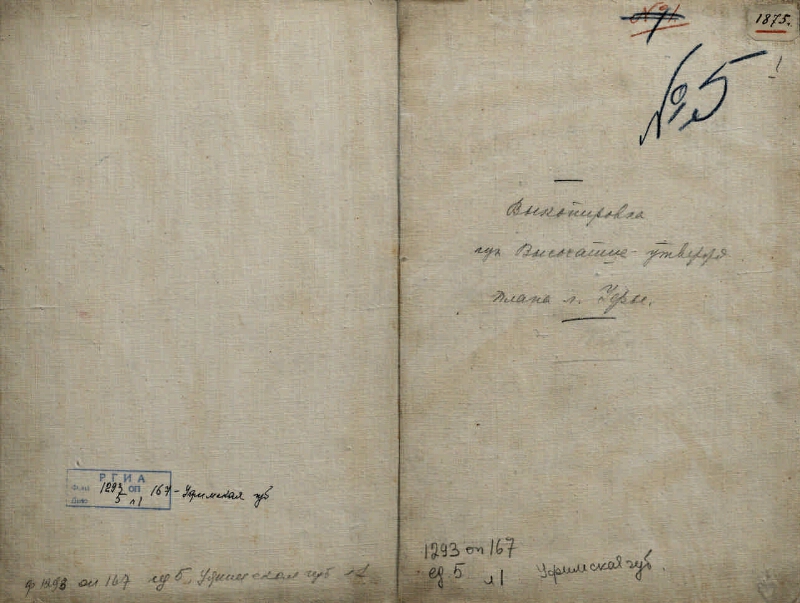 РГИА
Фонд 1293 оп 167 - Уфимская губ
Дело 5 л1
ф 1293 оп 167 ед 5 Уфимская губ л1
№ 91
1875.
1
№ 5
Выкопировка
из Высочайше утвержд
плана г. Уфы.
1293 оп 167
ед. 5 л1 Уфимская губ.